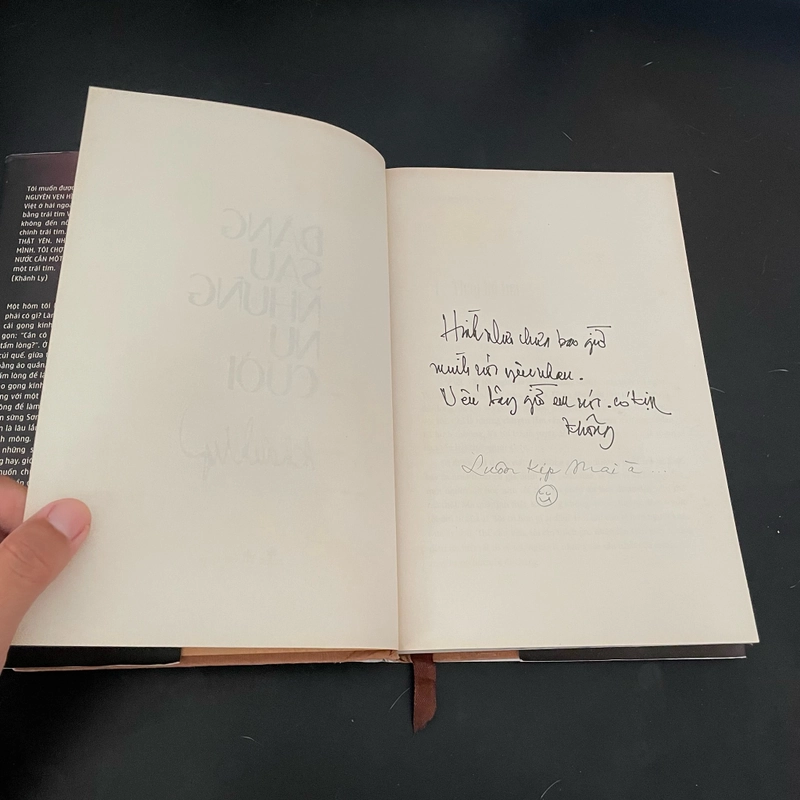 Tôi muốn được
NGUYÊN VẸN
Việt ở hải
bằng trái tim
không đến
chính trái tim.
THẬT YÊN,
MÌNH, TÔI
NƯỚC CẦN MỘT
một trái tim.
(Khánh Ly)
Một hôm tôi
phải có gì?
cái gọng kính
gọn: "Cần có
tấm lòng?". Ở
giữa
bằng áo
tấm lòng để
gọng kính
với một
để làm
Sơn
là lâu
mông.
những
hay,
ĐẰNG
SAU
NHỮNG
NỤ
CƯỜI
Hình như chưa bao giờ
mình nói yêu nhau.
Nếu bây giờ em nói. có tin
không
Luôn kịp Mai à ...